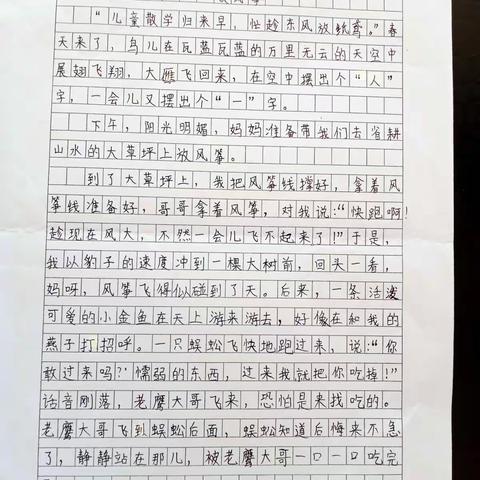 “儿童散学归来早，忙趁东风放纸鸢。”春
天来了，鸟儿在瓦蓝瓦蓝的万里无云的天空中
展翅飞翔，大雁飞回来，在空中摆出个“人”
字，一会儿又摆出个“一”字。
下午，阳光明媚，妈妈准备带我们去省耕
山水的大草坪上放风筝。
到了大草坪上，我把风筝线撑好，拿着风
筝线准备好，哥哥拿着风筝，对我说：“快跑啊！
趁现在风大，不然一会儿飞不起来了！”于是，
我以豹子的速度冲到一棵大树前，回头一看，
妈呀，风筝飞得似碰到了天。后来，一条活泼
可爱的小金鱼在天上游来游去，好像在和我的
燕子打招呼。一只蜈蚣飞快地跑过来，说：“你
敢过来吗？懦弱的东西，过来我就把你吃掉！”
话音刚落，老鹰大哥飞来，恐怕是来找吃的。
老鹰大哥飞到蜈蚣后面，蜈蚣知道后悔来不急
了，静静站在那儿，被老鹰大哥一口一口吃完